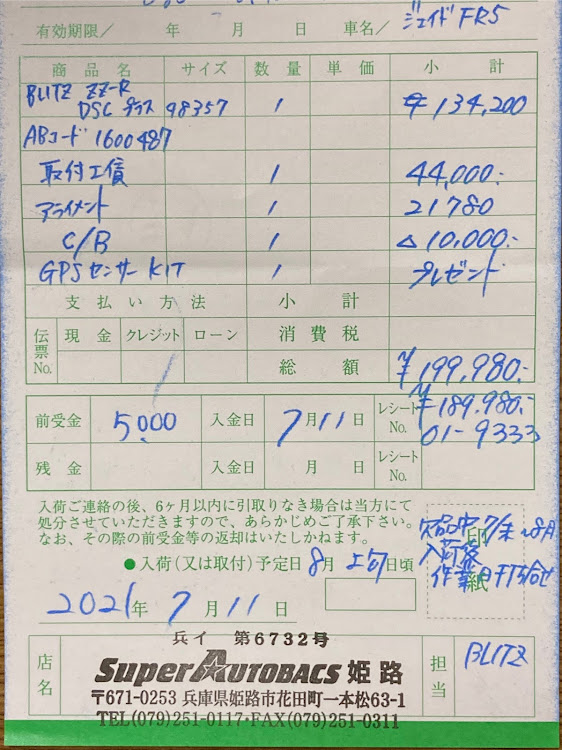 有効期限／ 年 月 日 車名／ ジェイド FR5
商品名 サイズ 数量 単価 小計
BLITZ ZZ-R
DSC プラス 98357 1 ¥134,200
ABコード 1600487
取付工賃 1 44,000.-
アライメント 1 21780
C/B 1 △10,000.-
GPSセンサーKIT 1 プレゼント
支払い方法 小計
伝票No. 現金 クレジット ローン 消費税
総額 ¥199,980.-
¥189,980.-
前受金 5000 入金日 7月11日 レシートNo. 01-9333
残金 入金日 月 日 レシートNo.
入荷ご連絡の後、6ヶ月以内に引取りなき場合は当方にて
処分させていただきますので、あらかじめご了承下さい。
なお、その際の前受金等の返却はいたしかねます。
欠品中 7/末〜8月
入荷後
作業日打合せ
印紙
●入荷(又は取付)予定日 8月 上旬 日頃
2021年 7月11日
兵イ 第6732号
店名 Super AUTOBACS 姫路
〒671-0253 兵庫県姫路市花田町一本松63-1
TEL(079)251-0117・FAX(079)251-0311
担当 BLITZ